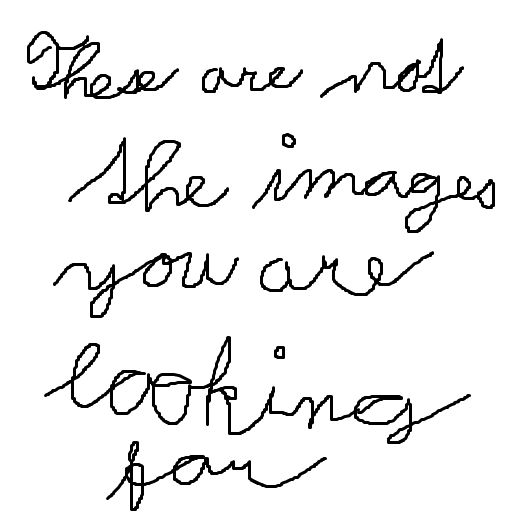 These are not
the images
you are
looking
for